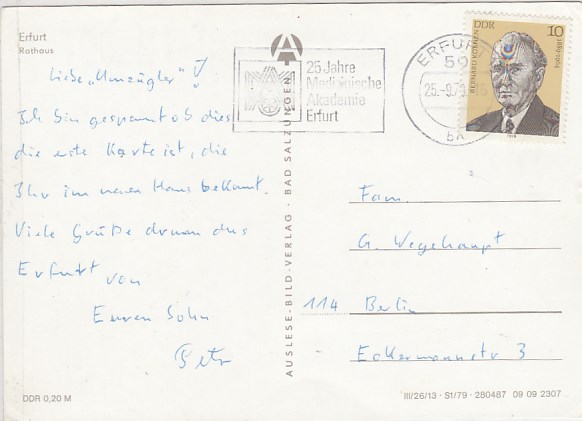 Erfurt
Rathaus
Liebe „Umzügler"!
Ich bin gespannt ob dies
die erste Karte ist, die
Ihr im neuen Haus bekommt.
Viele Grüße drum aus
Erfurt von
Eurem Sohn
Peter
DDR 0,20 M
AUSLESE-BILD-VERLAG · BAD SALZUNGEN
25 Jahre
Medizinische
Akademie
Erfurt
ERFURT
50
25.-9.79
bA
DDR 10
BERNARD KOENEN
1889-1964
1979
Fam.
G. Wegehaupt
114 Berlin
Eckermannstr 3
III/26/13 · S1/79 · 280487 09 09 2307